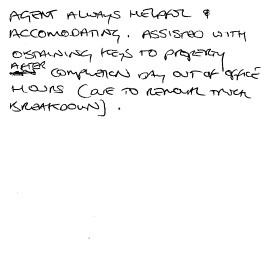 AGENT ALWAYS HELPFUL &
ACCOMODATING. ASSISTED WITH
OBTAINING KEYS TO PROPERTY
AFTER COMPLETION DAY OUT OF OFFICE
HOURS (DUE TO REMOVAL TRUCK
BREAKDOWN).